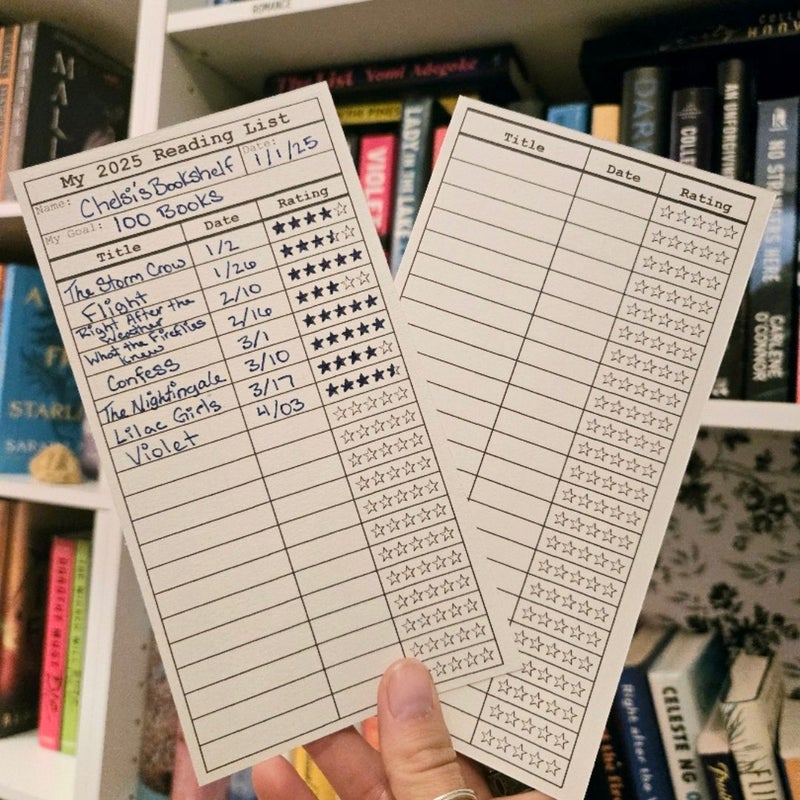 ROMANCE
The List Yomi Adegoke
My 2025 Reading List
Name: Chelsi's Bookshelf
Date: 1/1/25
My Goal: 100 Books
Title Date Rating
The Storm Crow 1/2
Flight 1/26
Right After the Weather 2/10
What the Fireflies Knew 2/16
Confess 3/1
The Nightingale 3/10
Lilac Girls 3/17
Violet 4/03
Title Date Rating
VIOLET
LADY IN THE LAKE
DARK
NO STRANGERS HERE
CARLENE O'CONNOR
STARL
SARA
CELESTE NG
Right after the